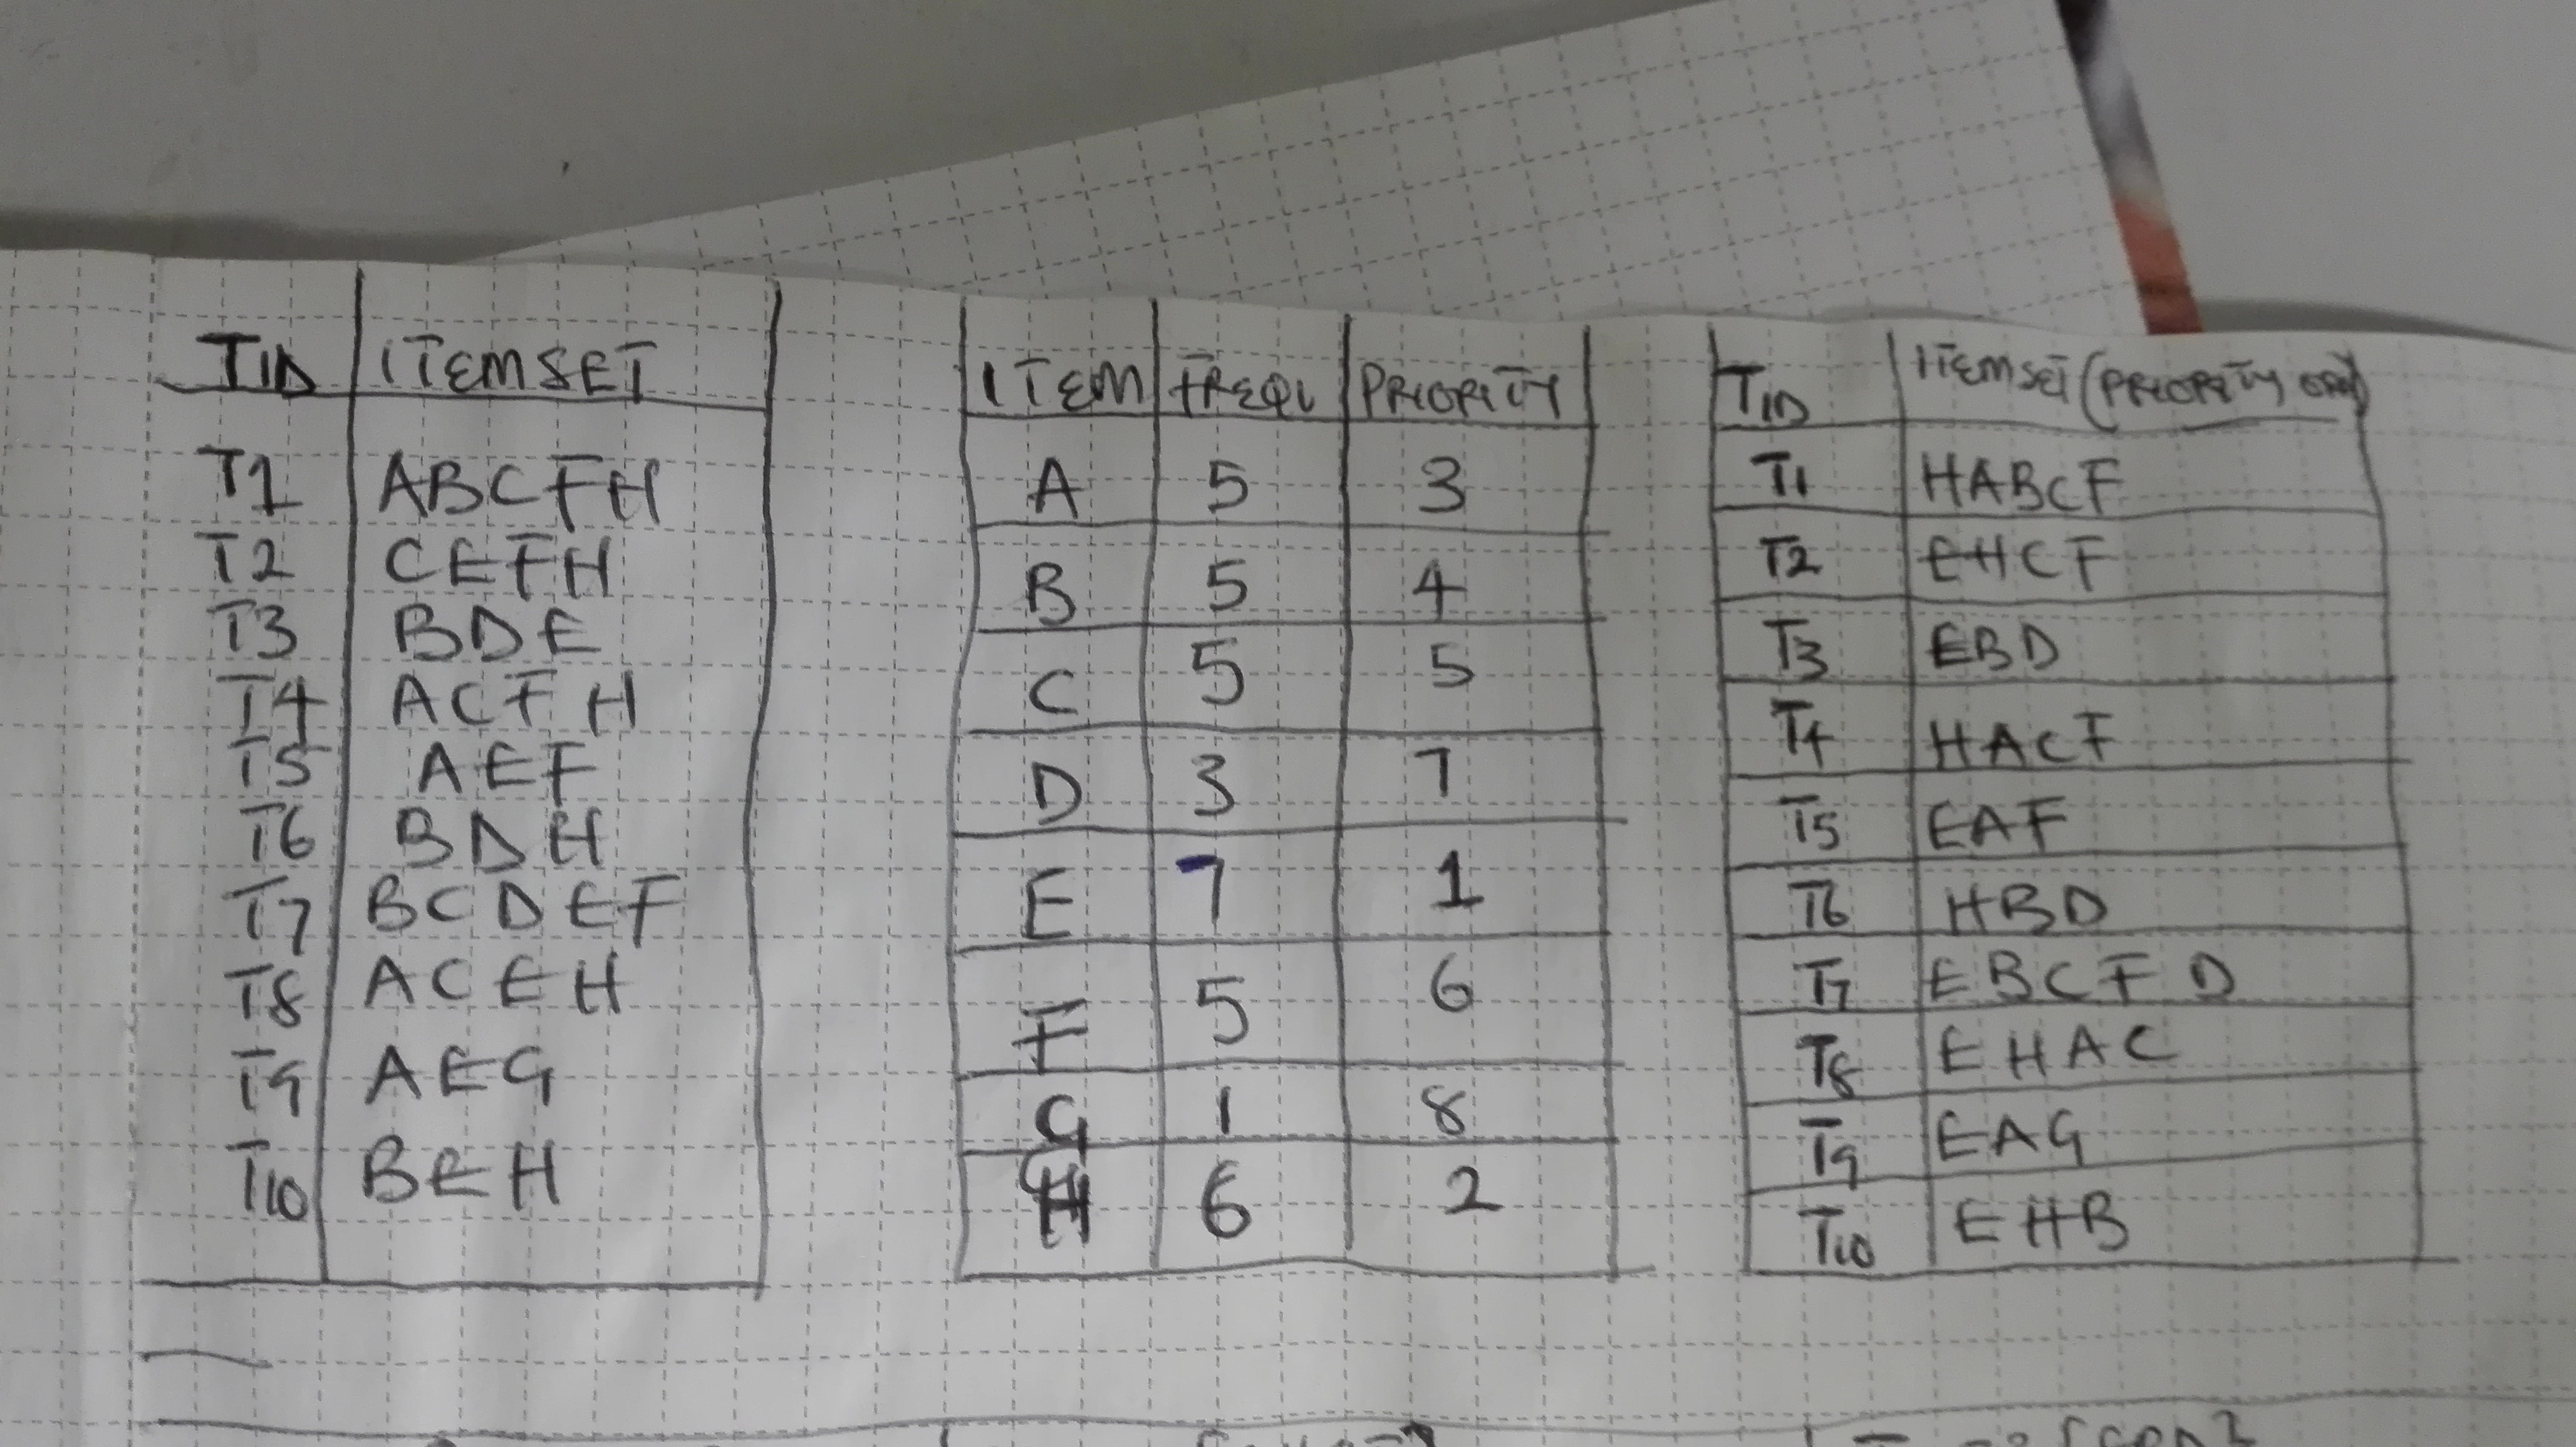 TID ITEMSET
T1 ABCFH
T2 CEFH
T3 BDE
T4 ACFH
T5 AEF
T6 BDH
T7 BCDEF
T8 ACEH
T9 AEG
T10 BEH
ITEM FREQU PRIORITY
A 5 3
B 5 4
C 5 5
D 3 7
E 7 1
F 5 6
G 1 8
H 6 2
TID ITEMSET (PRIORITY ORD)
T1 HABCF
T2 EHCF
T3 EBD
T4 HACF
T5 EAF
T6 HBD
T7 EBCFD
T8 EHAC
T9 EAG
T10 EHB